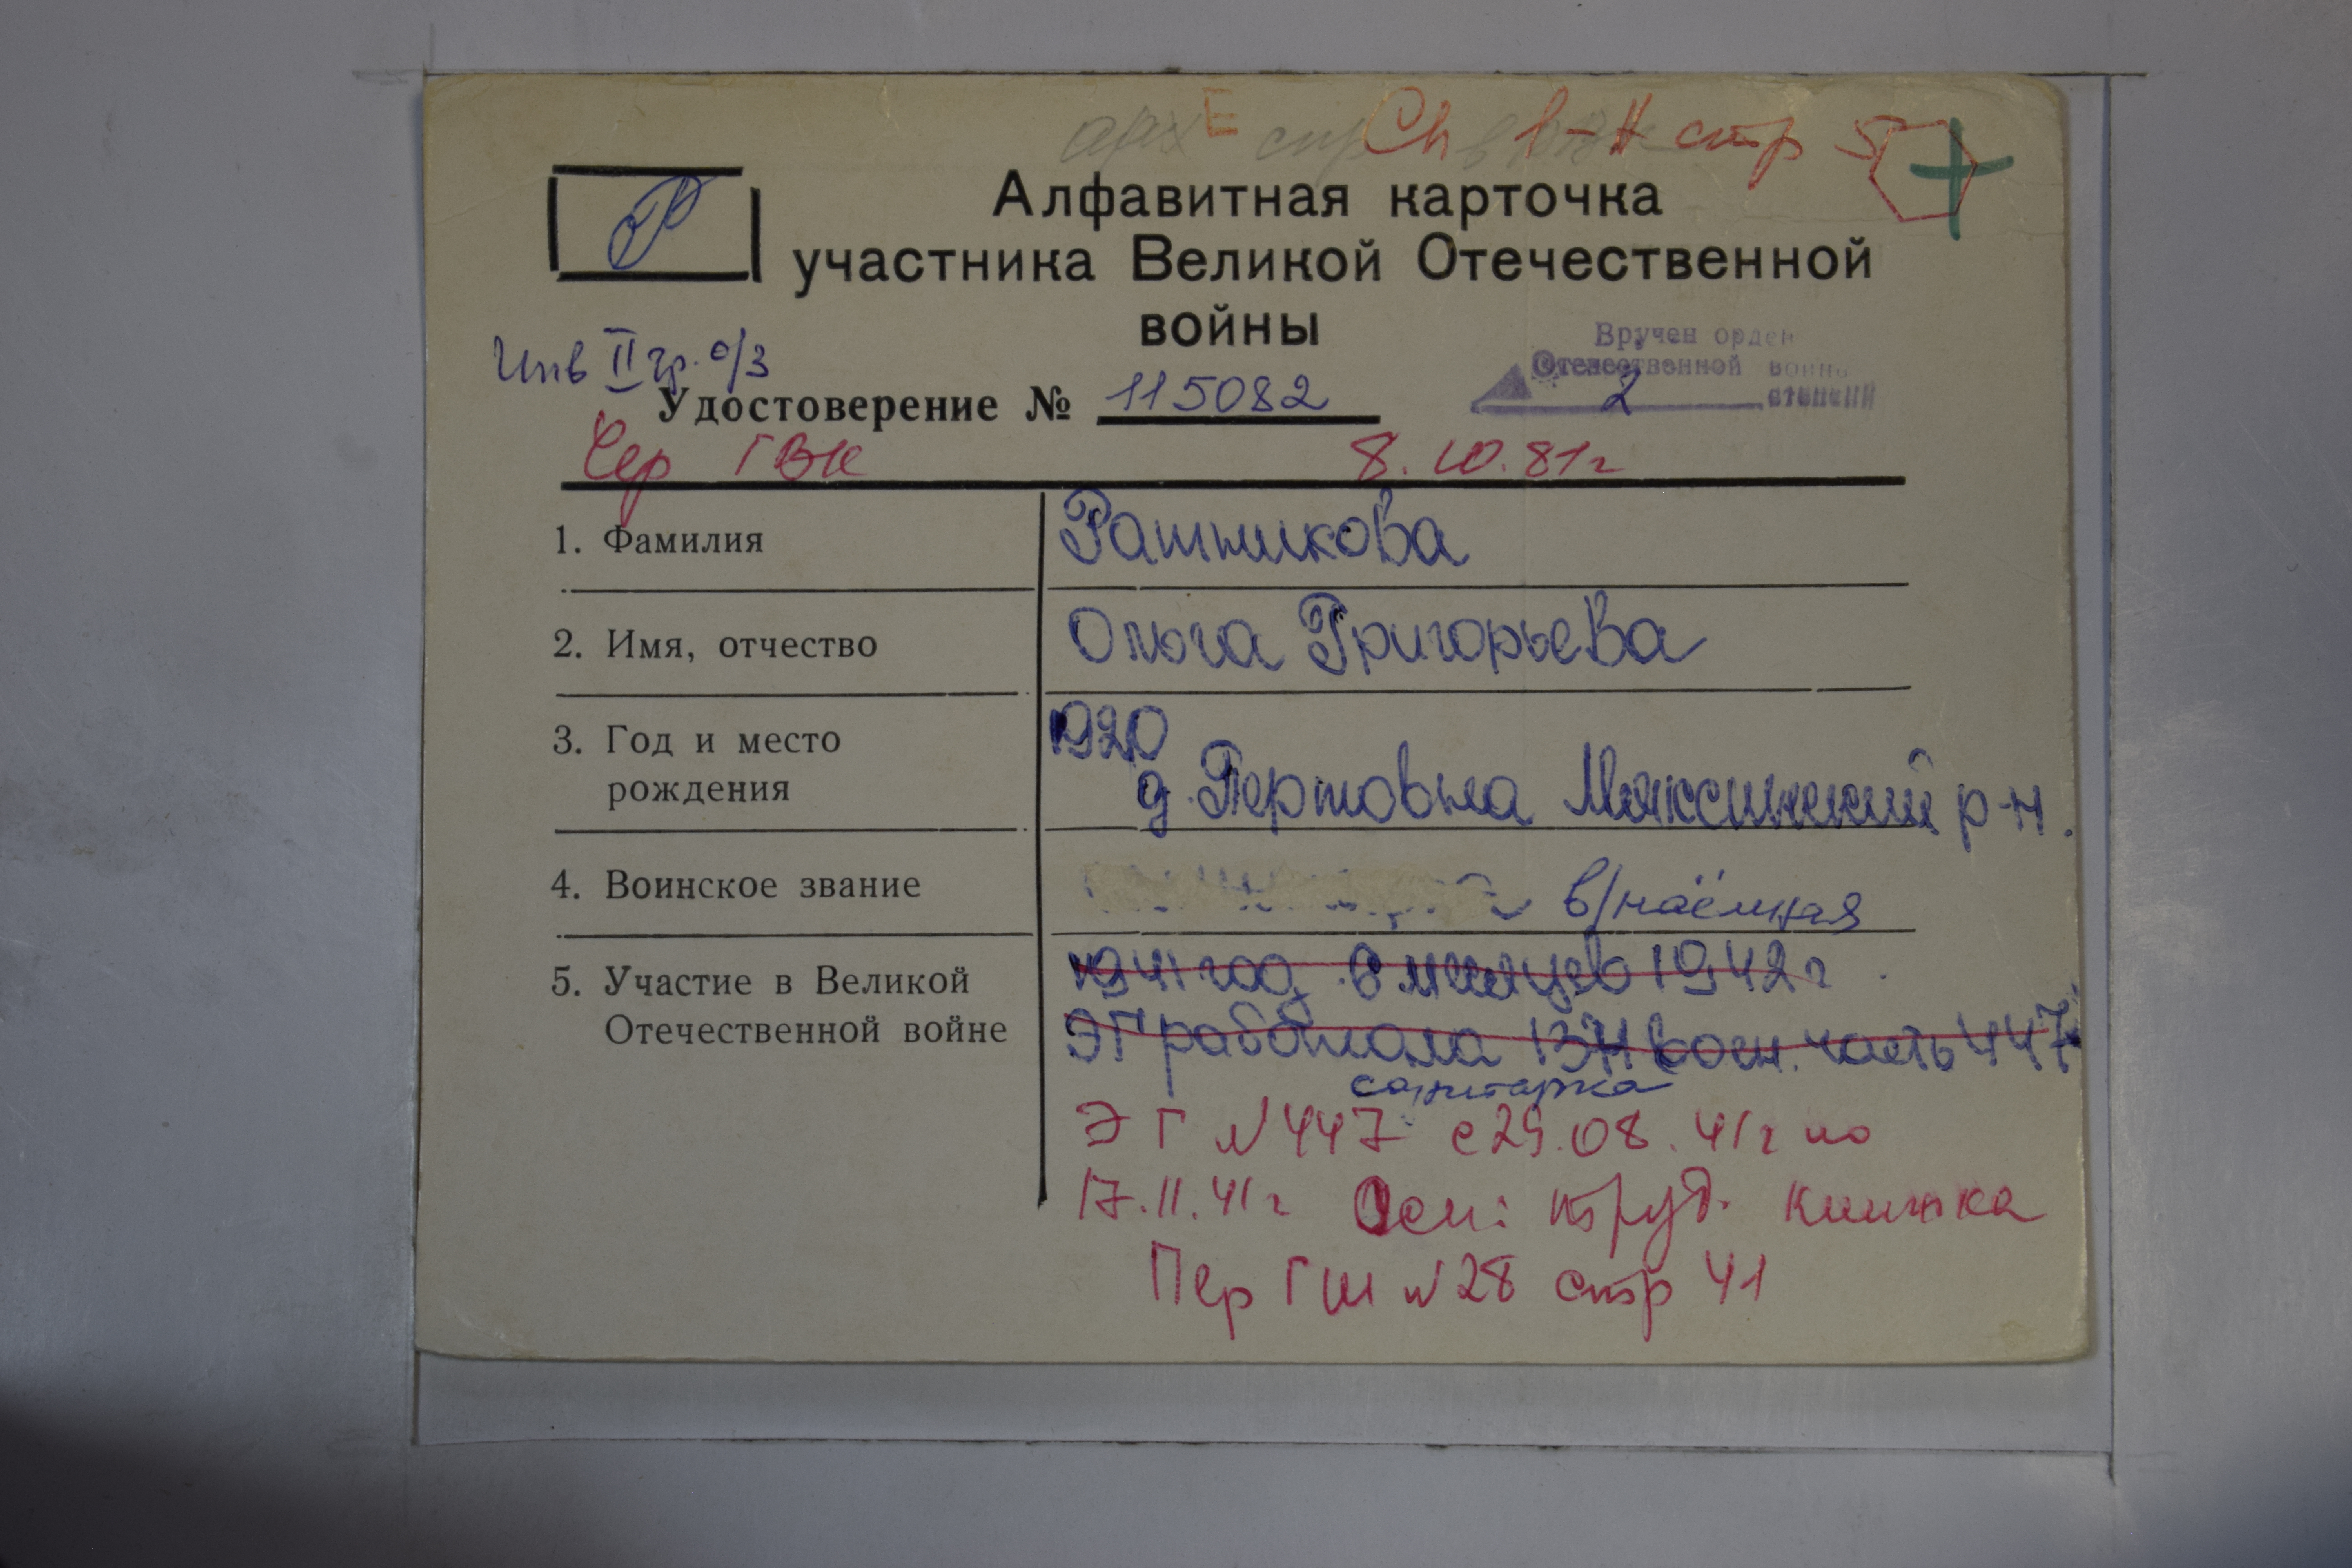 Е стр 5
Р
Алфавитная карточка
участника Великой Отечественной
войны
Вручен орден
Отечественной войны
2 степени
Инв II гр. о/з
Удостоверение № 115082
Чер ГВК 8.10.81г
1. Фамилия Ратникова
2. Имя, отчество Ольга Григорьева
3. Год и место 1920
рождения д. Пертовка Мяксинский р-н.
4. Воинское звание в/наёмная
5. Участие в Великой 1941 год 6 месяцев 1942 г
Отечественной войне ЭГ работала воен. часть 447
санитарка
ЭГ №447 с 29.08.41г по
17.11.41г Осн: труд. книжка
Пер ГШ №28 стр 41